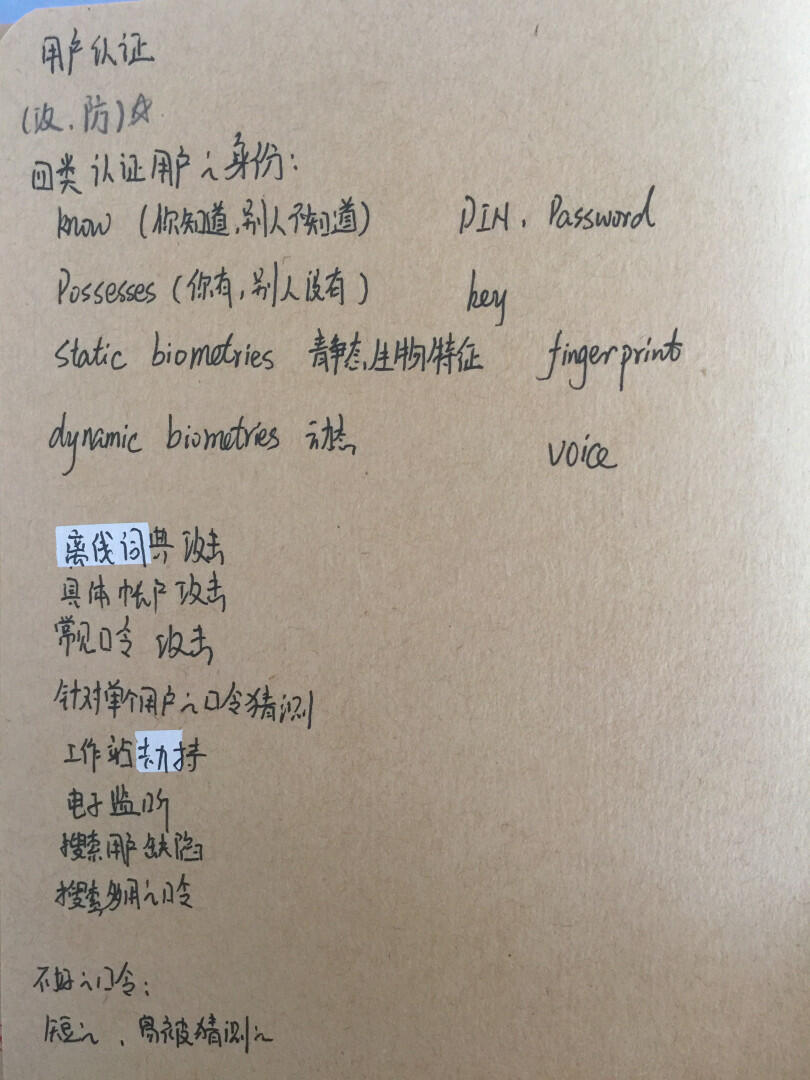 用户认证
(攻、防)☆
四类认证用户之身份:
know (你知道,别人不知道) PIN、Password
Possesses (你有,别人没有) key
static biometries 静态生物特征 fingerprint
dynamic biometries 动态 voice
离线词典攻击
具体帐户攻击
常见口令攻击
针对单个用户之口令猜测
工作站劫持
电子监听
搜索用户缺陷
搜索多用之口令
不好之口令:
短之、易被猜测之